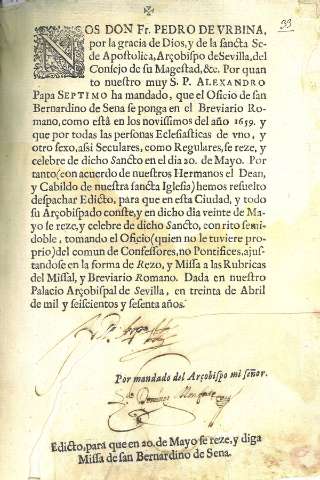 33
NOS DON Fr. PEDRO DE VRBINA,
por la gracia de Dios, y de la sancta Se-
de Apostolica, Arçobispo de Sevilla, del
Consejo de su Magestad, &c. Por quan
to nuestro muy S. P. ALEXANDRO
Papa SEPTIMO ha mandado, que el Oficio de san
Bernardino de Sena se ponga en el Breviario Ro-
mano, como està en los novissimos del año 1659. y
que por todas las personas Eclesiasticas de vno, y
otro sexo, assi Seculares, como Regulares, se reze, y
celebre de dicho Sancto en el dia 20. de Mayo. Por
tanto (con acuerdo de nuestros Hermanos el Dean,
y Cabildo de nuestra sancta Iglesia) hemos resuelto
despachar Edicto, para que en esta Ciudad, y todo
su Arçobispado conste, y en dicho dia veinte de Ma-
yo se reze, y celebre de dicho Sancto, con rito semi-
doble, tomando el Oficio (quien no le tuviere pro-
prio) del comun de Confessores, no Pontifices, ajus-
tandose en la forma de Rezo, y Missa a las Rubricas
del Missal, y Breviario Romano. Dada en nuestro
Palacio Arçobispal de Sevilla, en treinta de Abril
de mil y seiscientos y sesenta años.
Por mandado del Arçobispo mi señor.
Edicto, para que en 20. de Mayo se reze, y diga
Missa de san Bernardino de Sena.